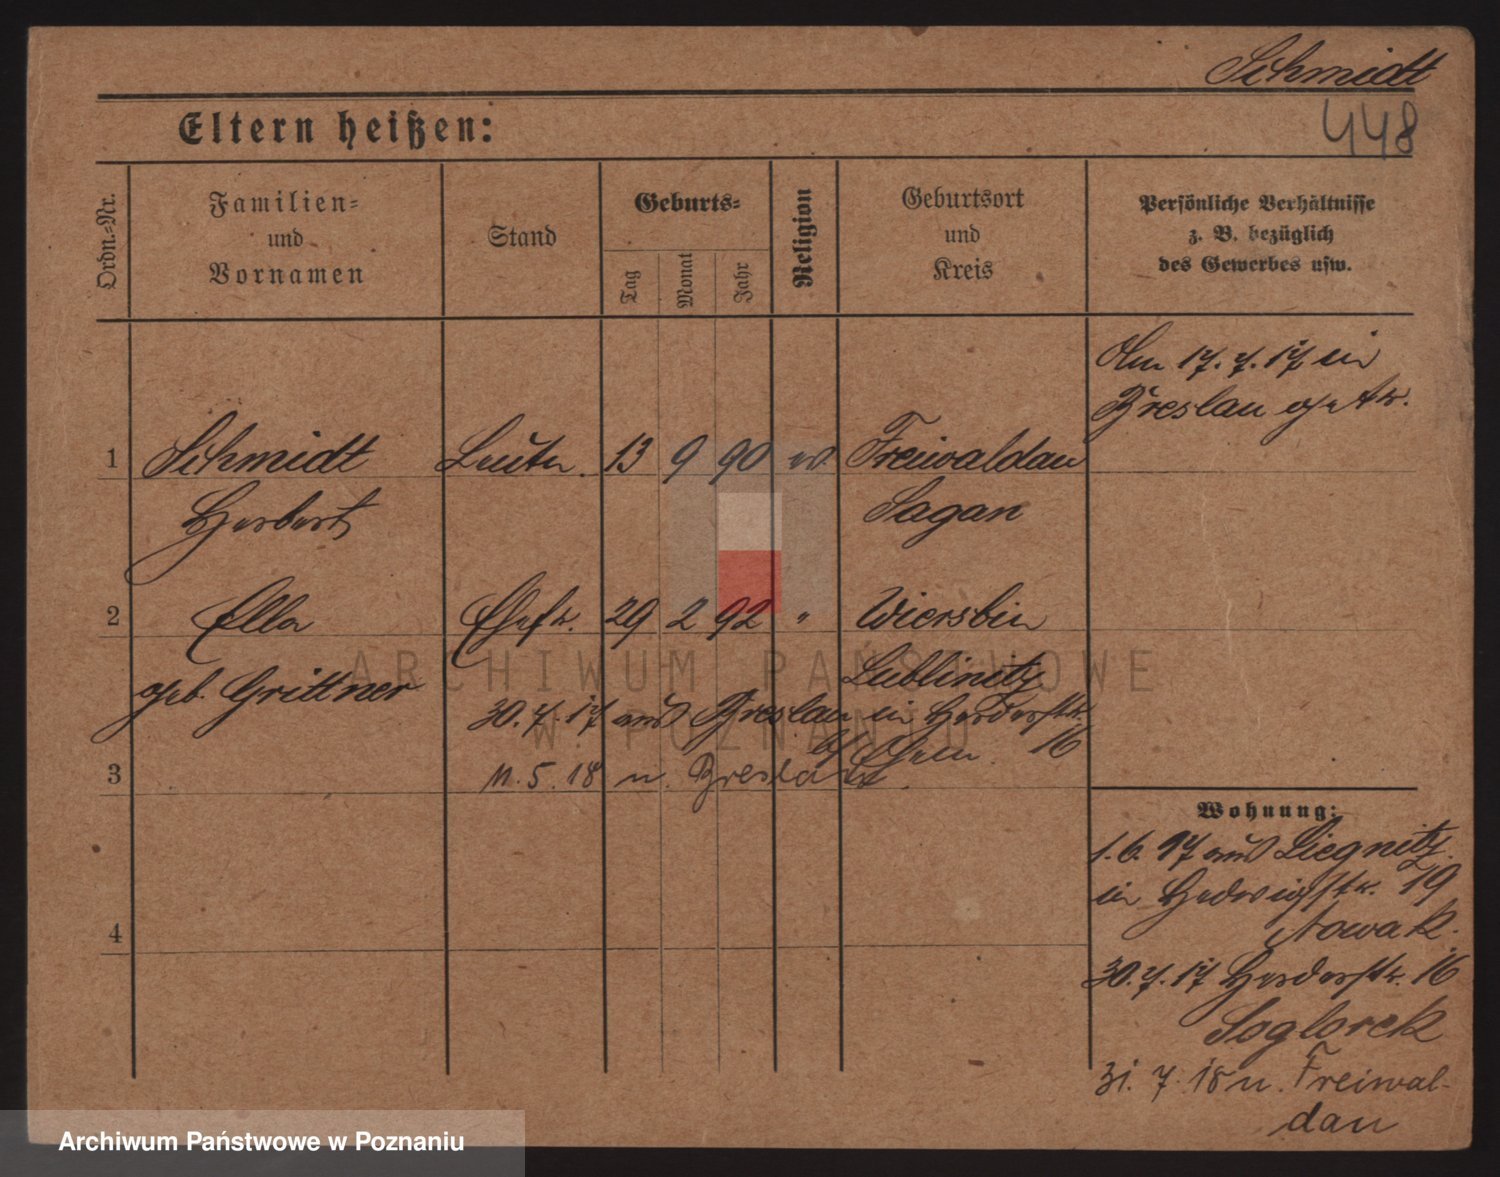 Schmidt
448
Eltern heißen:
Ordn.=Nr.
Familien=
und
Vornamen
Stand
Geburts=
Tag
Monat
Jahr
Religion
Geburtsort
und
Kreis
Persönliche Verhältnisse
z. B. bezüglich
des Gewerbes usw.
Am 17.7.17 in
Breslau getr.
1 Schmidt Leutn. 13 9 90 ev. Freiwaldau
Herbert Sagan
2 Ella Ehefr. 29 2 92 " Wiersbin
geb. Grittner Lublinitz
30.7.17 aus Breslau in Herderstr. 16
b/ Ehem.
3 11.5.18 n. Breslau
Wohnung:
1.6.17 aus Liegnitz
in Hedwigstr. 19
Nowak.
4
30.7.17 Herderstr. 16
Soglorek
31.7.18 n. Freiwal-
dau
ARCHIWUM PAŃSTWOWE
W POZNANIU
Archiwum Państwowe w Poznaniu